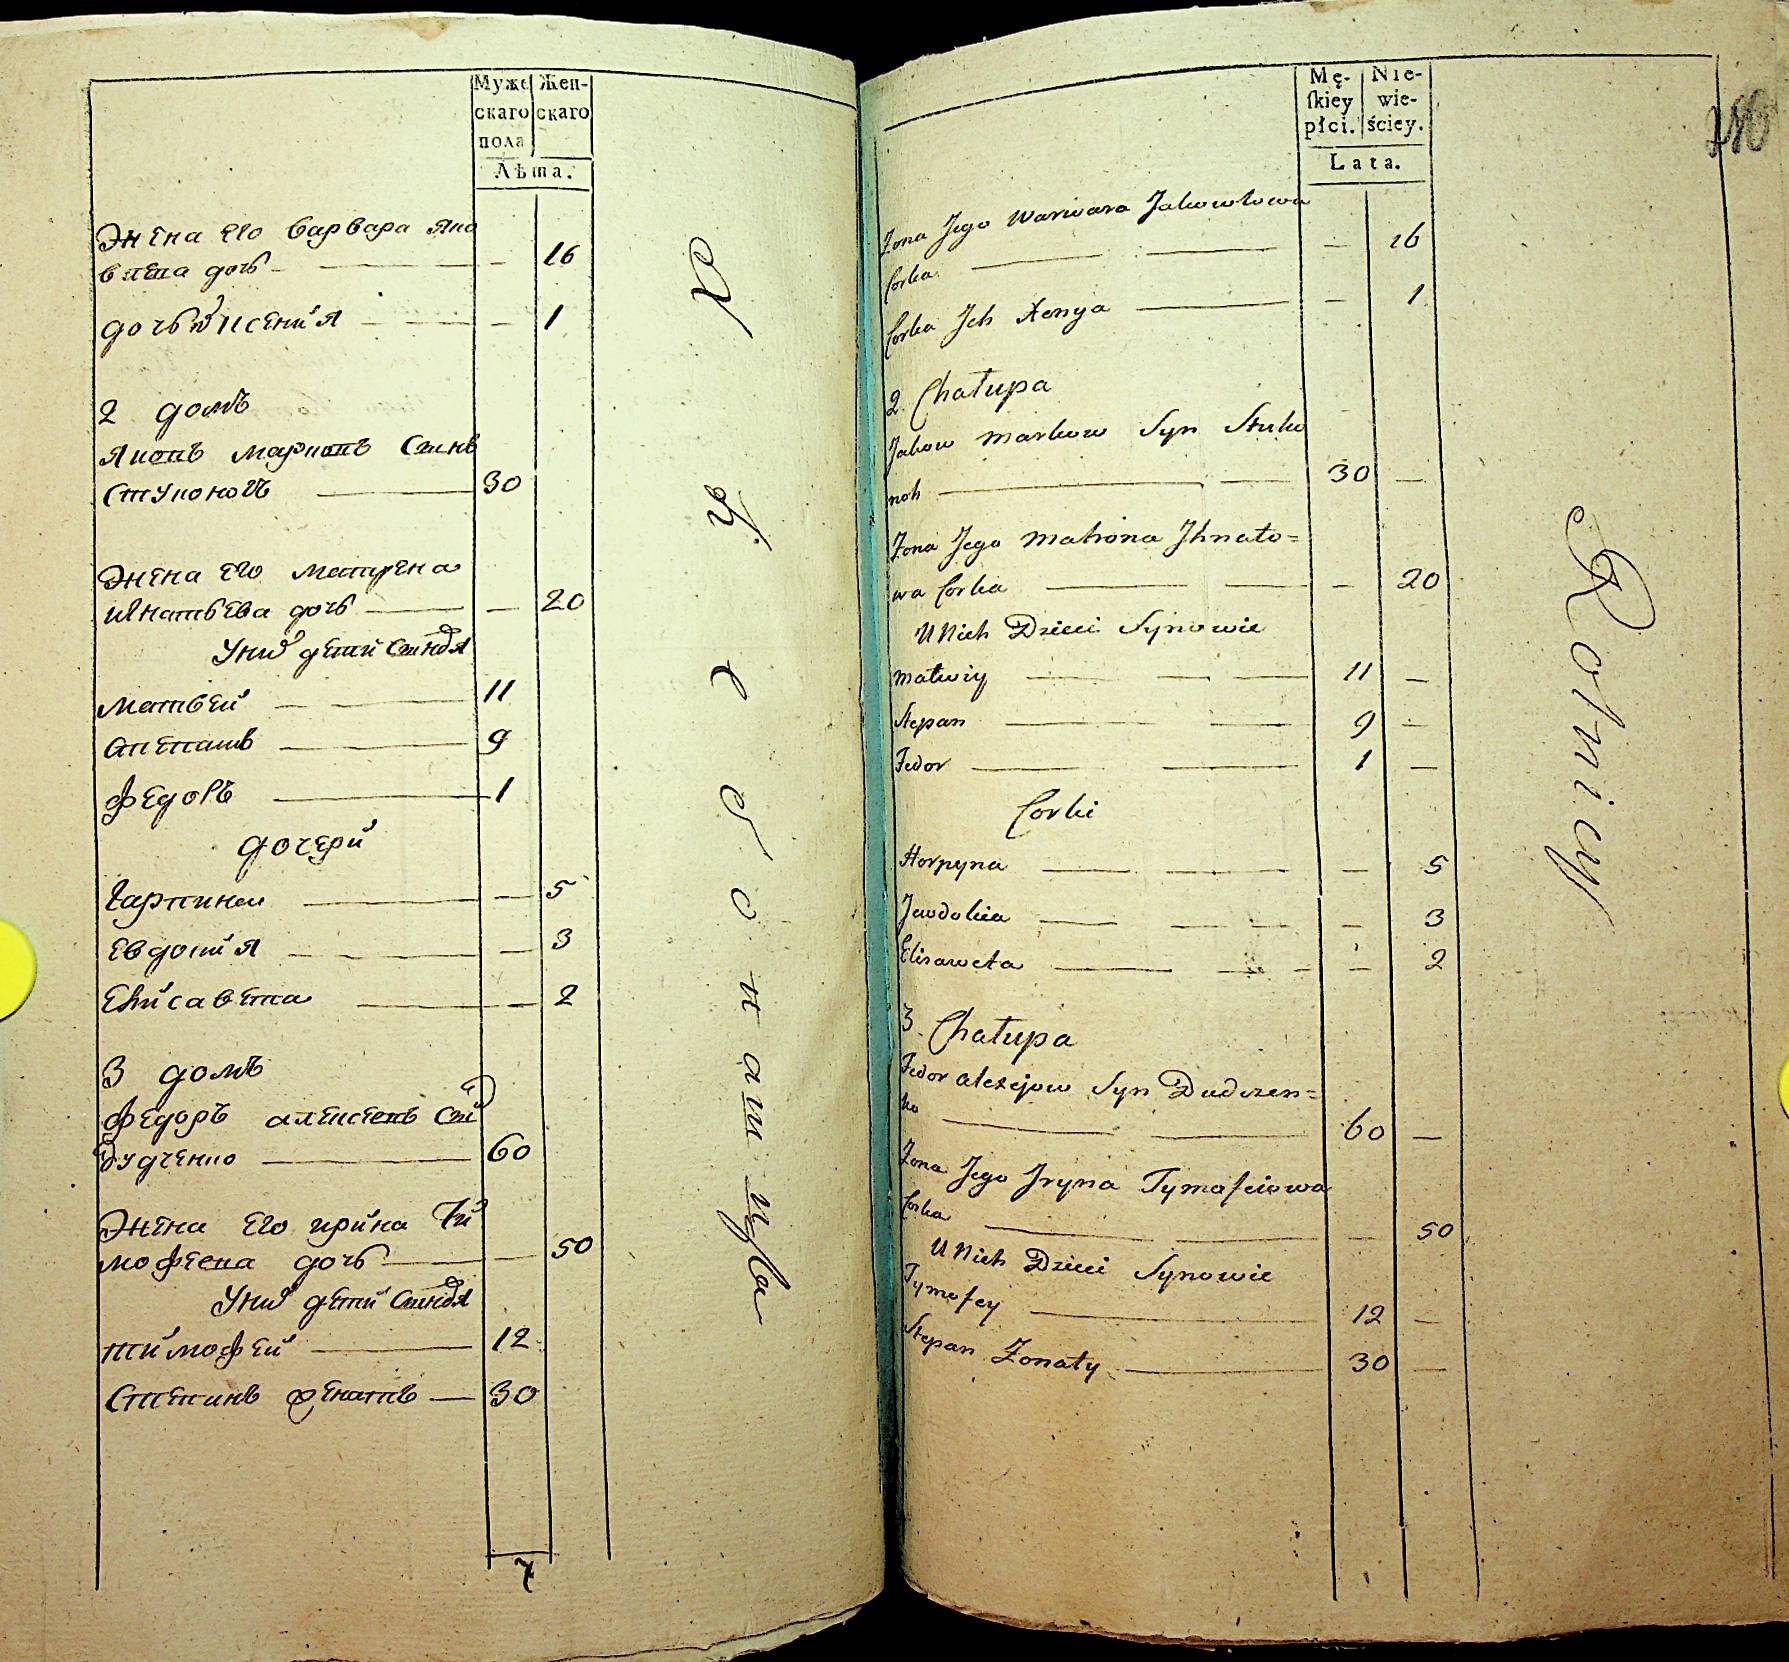 Муже
скаго
пола
Жен-
скаго
Лѣта.
Жена его варвара яко
влева дочь — — 16
дочь ихъ ксения — — 1
2 домъ
Яковъ марковъ Сынъ
Стуконогъ — 30
Жена его матрена
игнатьева дочь — — 20
у них дети Сыновья
матвей — 11
Степанъ — 9
Федоръ — 1
дочери
Гарпина — — 5
Евдокия — — 3
Елисавета — — 2
3 домъ
Федоръ алексеевъ Сынъ
Дудченко — 60
Жена его ирина Ти
мофеева дочь — — 50
у них дети Сыновья
тимофей — 12
Степанъ женатъ — 30
7
Mę-
skiey
płci.
Nie-
wie-
ściey.
Lata.
Zona Jego Warwara Jakowlowa
Corka — — 16
Corka Jch Xenya — — 1
2 Chałupa
Jakow Markow Syn Stuko
noh — 30 —
Zona Jego Matrona Jhnato=
wa Corka — — 20
U Nich Dzieci Synowie
Matwiy — 11 —
Stepan — 9 —
Fedor — 1 —
Corki
Horpyna — — 5
Jewdokia — — 3
Elisaweta — — 2
3 Chałupa
Fedor Alexejow Syn Dudczen=
ko — 60 —
Zona Jego Jryna Tymofeiowa
Corka — — 50
U Nich Dzieci Synowie
Tymofey — 12 —
Stepan Zonaty — 30 —
Rolnicy